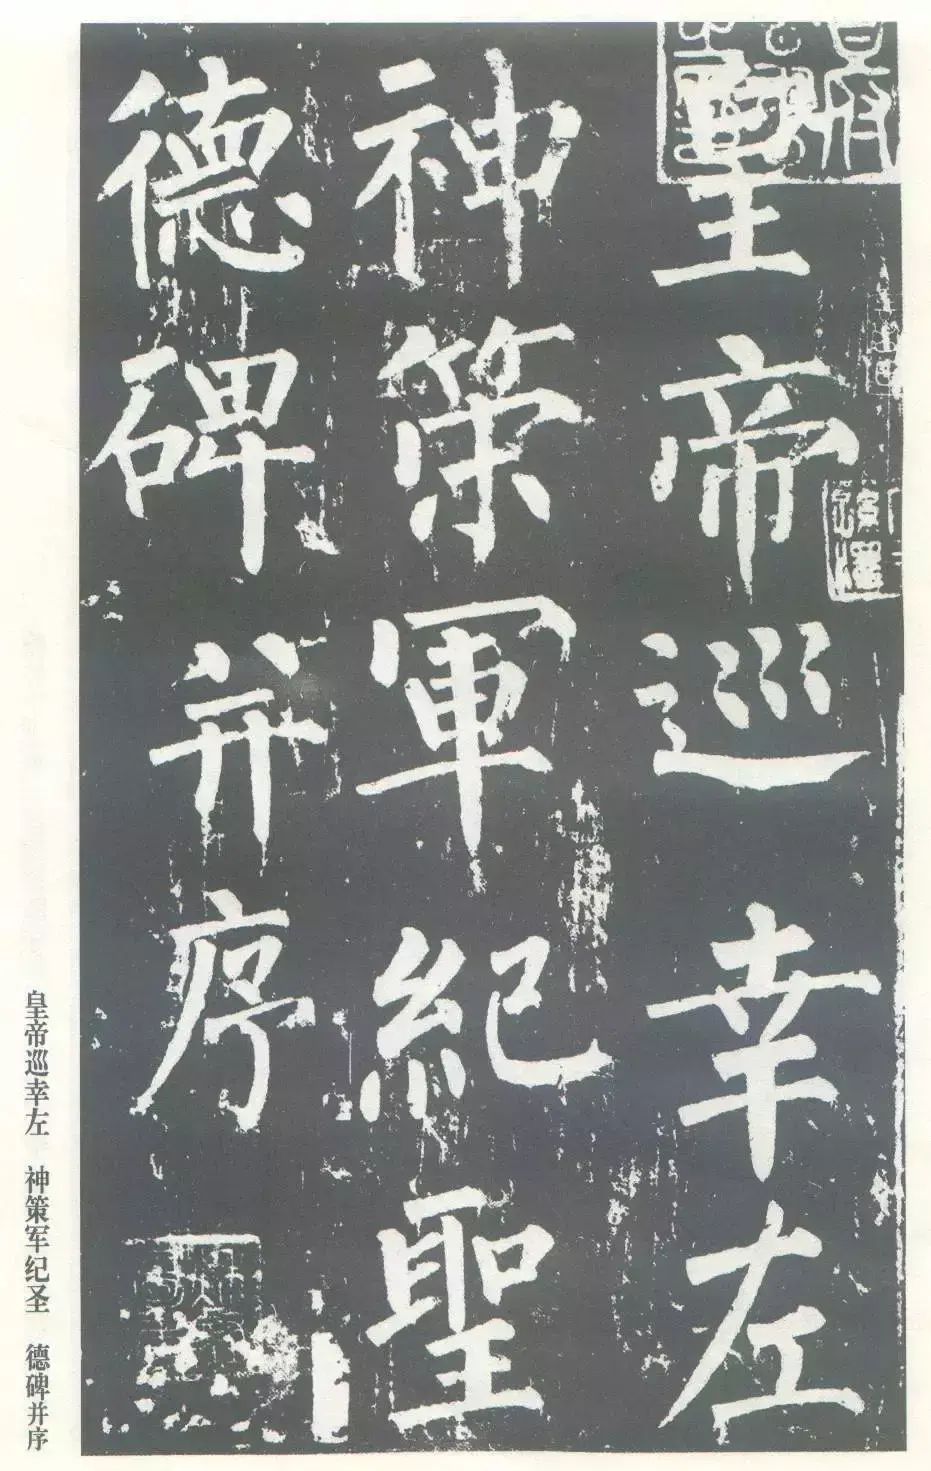 皇帝巡幸左
神策軍紀聖
德碑并序
皇帝巡幸左 神策军纪圣 德碑并序